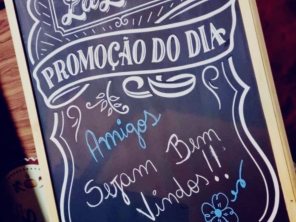 PROMOÇÃO DO DIA
Amigos
Sejam Bem
Vindos!!